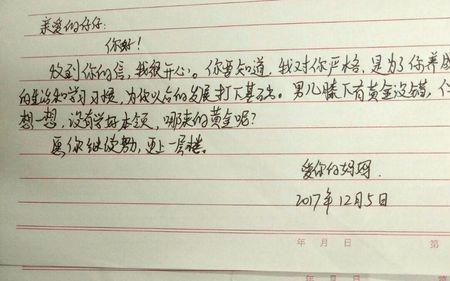 亲爱的仔仔:
你好!
收到你的信,我很开心。你要知道,我对你严格,是为了你养成
的生活和学习习惯,为你以后的发展打下基础。男儿膝下有黄金没错,仔
想一想,没有学好本领,哪来的黄金呢?
愿你继续努力,更上一层楼。
爱你的妈妈
2017年12月5日
年 月 日 第
年 月 日